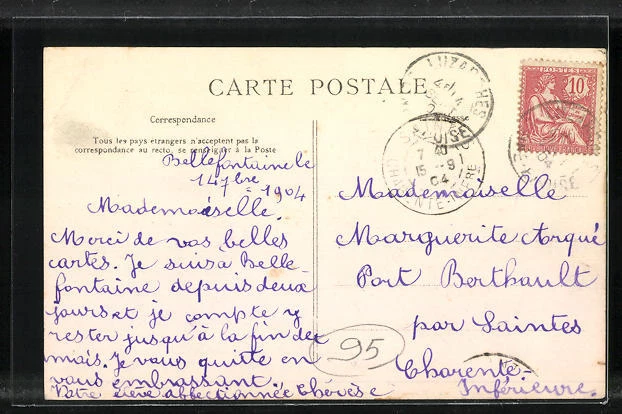 CARTE POSTALE
Correspondance
Tous les pays étrangers n'acceptent pas la
correspondance au recto, se renseigner à la Poste
Bellefontaine le
14 7bre 1904
Mademoiselle.
Merci de vos belles
cartes. Je suis a Belle-
fontaine depuis deux
jours et je compte y
rester jusqu'à la fin du
mois. Je vous quitte en
vous embrassant.
Votre élève affectionnée Thérèse
LUZARCHES
OISE
7 40
15 9
04
POSTES
10
Mademoiselle
Marguerite Arqué
Port Berthault
par Saintes
Charente-
Inférieure.
95